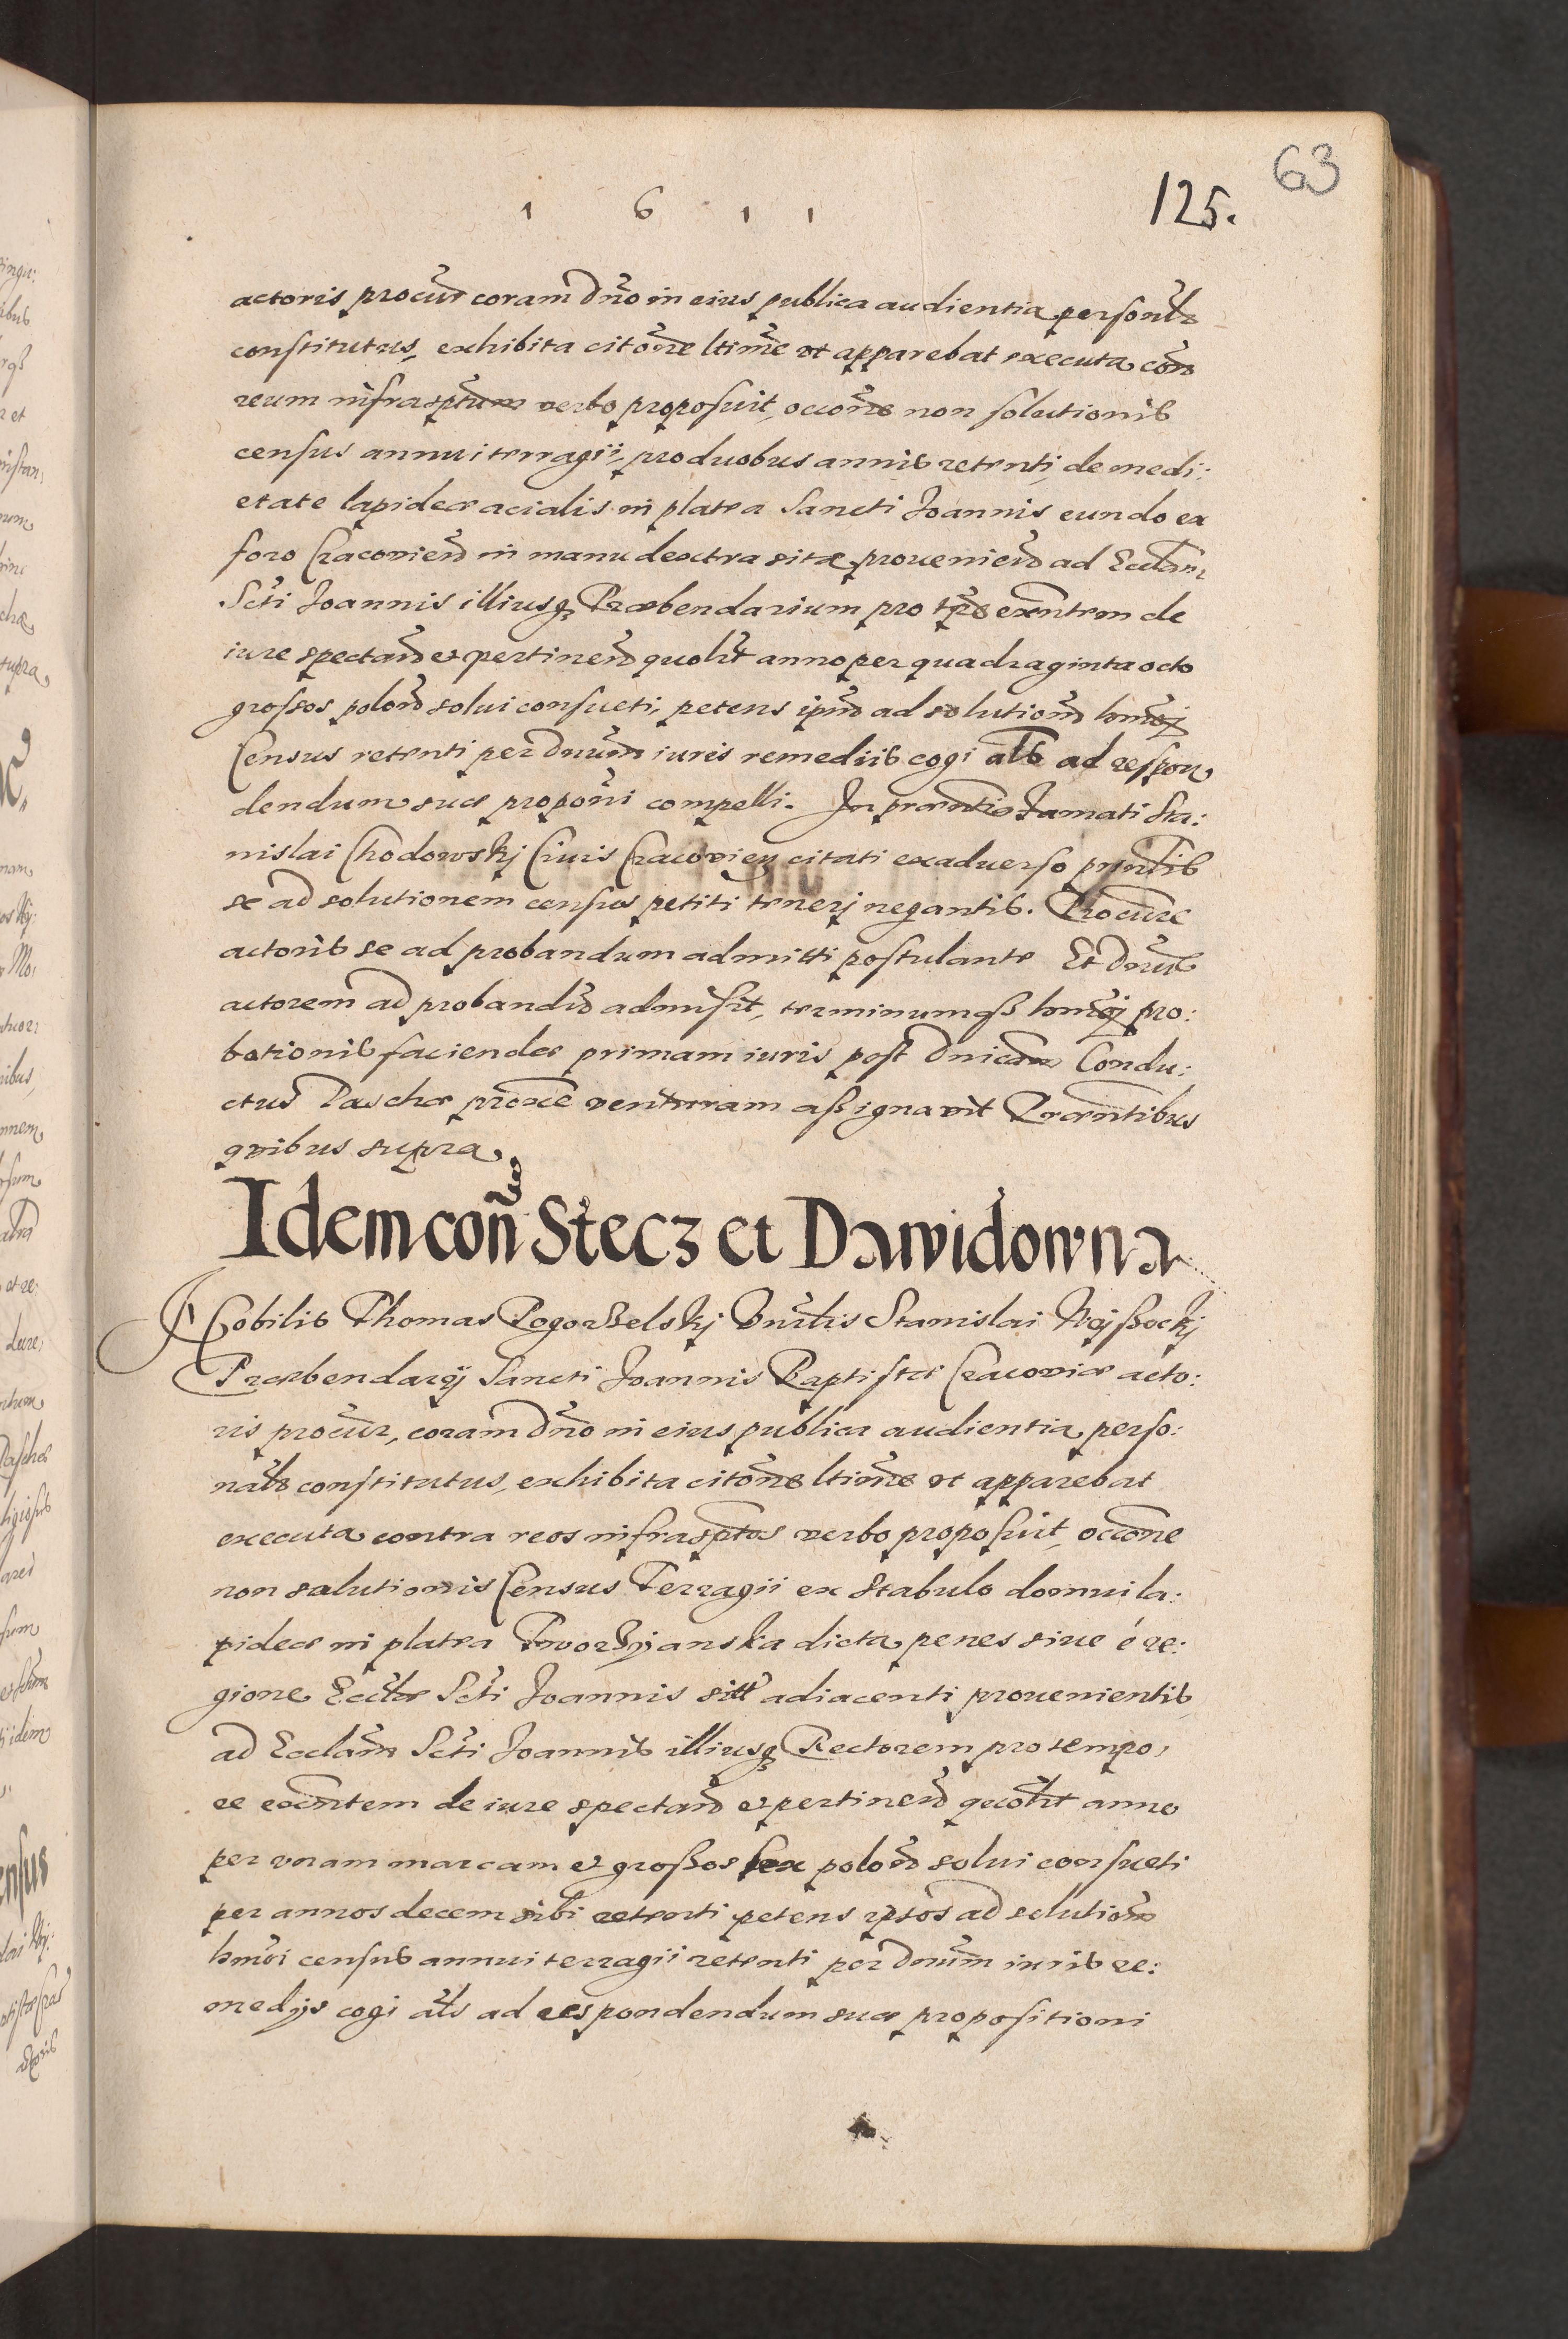 63
1 6 1 1
125.
actoris procur coram Dno in eius publica audientia personlr
constitutus, exhibita citone ltime vt apparebat executa con
reum infrasptum verbo proposuit, occone non solutionis
census annui terragii, pro duobus annis retenti, de medi:
etate lapideæ acialis in platea Sancti Joannis eundo ex
foro Cracovien in manu dextra sitæ, provenien ad Ecclam
Scti Joannis illiusq Præbendarium pro tpre exntem de
iure spectan et pertinen quolit anno per quadraginta octo
grossos polon solui consueti, petens ipm ad solution hmoj
Census retenti per Dnum iuris remediis cogi als ad respon
dendum suæ proponi compelli. In præntia Famati Sta:
nislai Chodowskj Ciuis Cracovien citati ex adverso pntis
se ad solutionem census petiti tenerj negantis. Procure
actoris se ad probandum admitti postulante Et Dnus
actorem ad proband admisit, terminumqß hmoj pro:
bationis faciendæ primam iuris post Dnicam Condu:
ctus Paschæ proxe venturam assignavit Præntibus
quibus supra
Idem con Stecz et Dawidowna
Nobilis Thomas Pogorzelskj Vnrlis Stanislai Wojßockj
Præbendarij Sancti Joannis Baptistæ Cracoviæ acto:
ris procur, coram Dno in eius publica audientia, perso:
nalr constitutus, exhibita citone ltime vt apparebat
executa contra reos infrasptos verbo proposuit, occone
non solutionis Census Terragii ex stabulo domui la:
pideæ in platea dicta, penes siue é re:
gione Ecclæ Scti Joannis adiacenti provenientis
ad Ecclam Scti Joannis illiusq Rectorem pro tempo,
re exntem de iure spectan et pertinen quolit anno
per vnam marcam et großos sex polon solui consueti
per annos decem sibi retenti petens iptos ad solution
hmoi census annui terragii retenti per Dnum iuris re:
medijs cogi als ad respondendum suæ propositioni